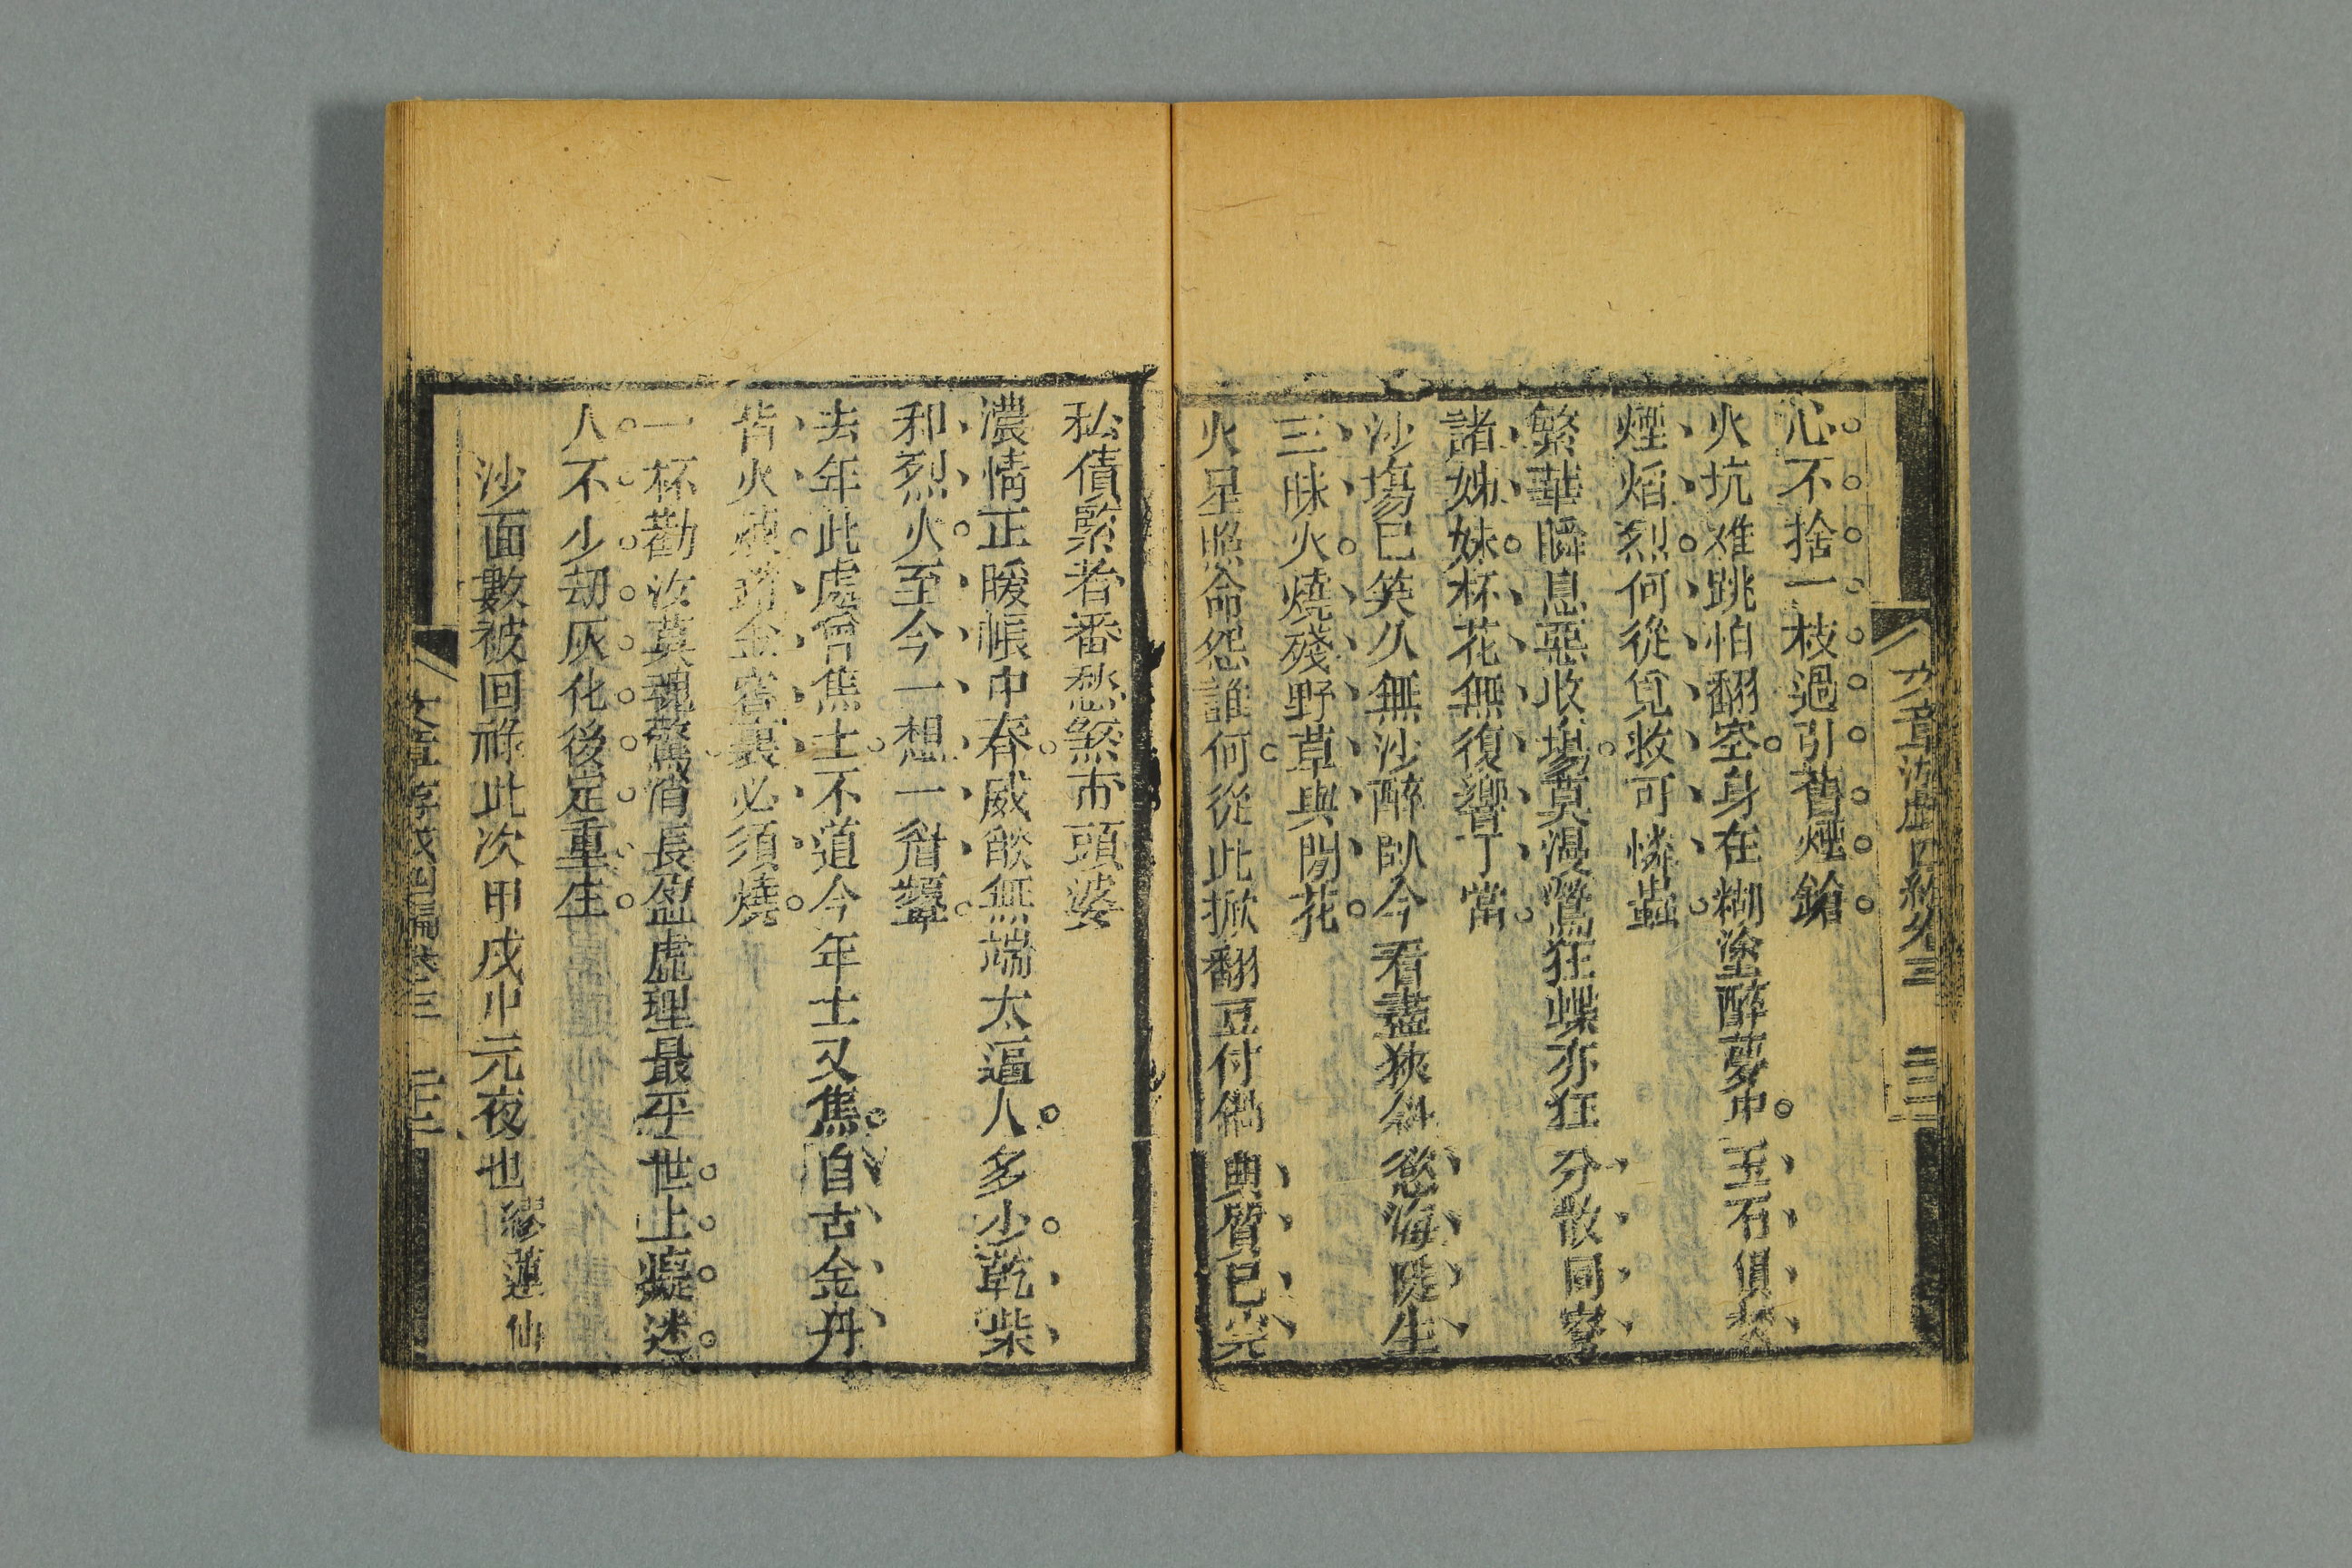 文章游戲四編卷三 三二
心不捨一枝過引舊煙鎗
火坑难跳怕翻空身在糊塗醉夢中玉石俱焚
煙熖烈何從覓救可憐蟲
繁華瞬息惡收場莫漫鶯狂蝶亦狂分散同寮
諸姊妹杯花無復響丁當
沙塲已笑久無沙醉臥今看盡狹斜慾海陡生
三昧火燒殘野草與閒花
火星照命怨誰何從此掀翻豆付鍋典質已完
私債緊者番愁煞市頭婆
濃情正暖帳中春威燄無端太逼人多少乾柴
和烈火至今一想一眉顰
去年此處曾焦土不道今年土又焦自古金丹
皆火煉銷金窩裏必須燒
一杯勸汝莫魂驚消長盈虛理最平世上癡迷
人不少刼灰化後定重生
沙面數被回祿此次甲戌中元夜也 繆蓮仙
文章游戲四編卷三 三二